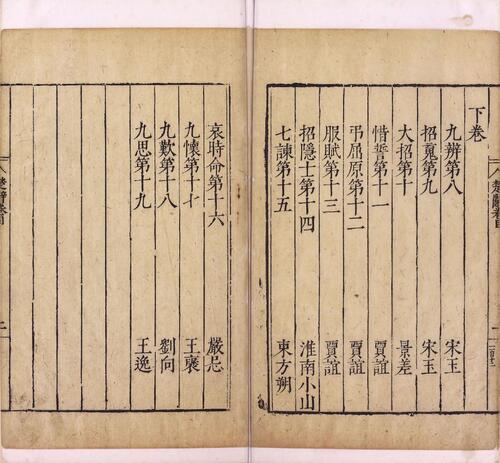 下卷
九辨第八 宋玉
招䰟第九 宋玉
大招第十 景差
惜誓第十一 賈誼
弔屈原第十二 賈誼
服賦第十三 賈誼
招隱士第十四 淮南小山
七諫第十五 東方朔
哀時命第十六 嚴忌
九懷第十七 王褒
九歎第十八 劉向
九思第十九 王逸